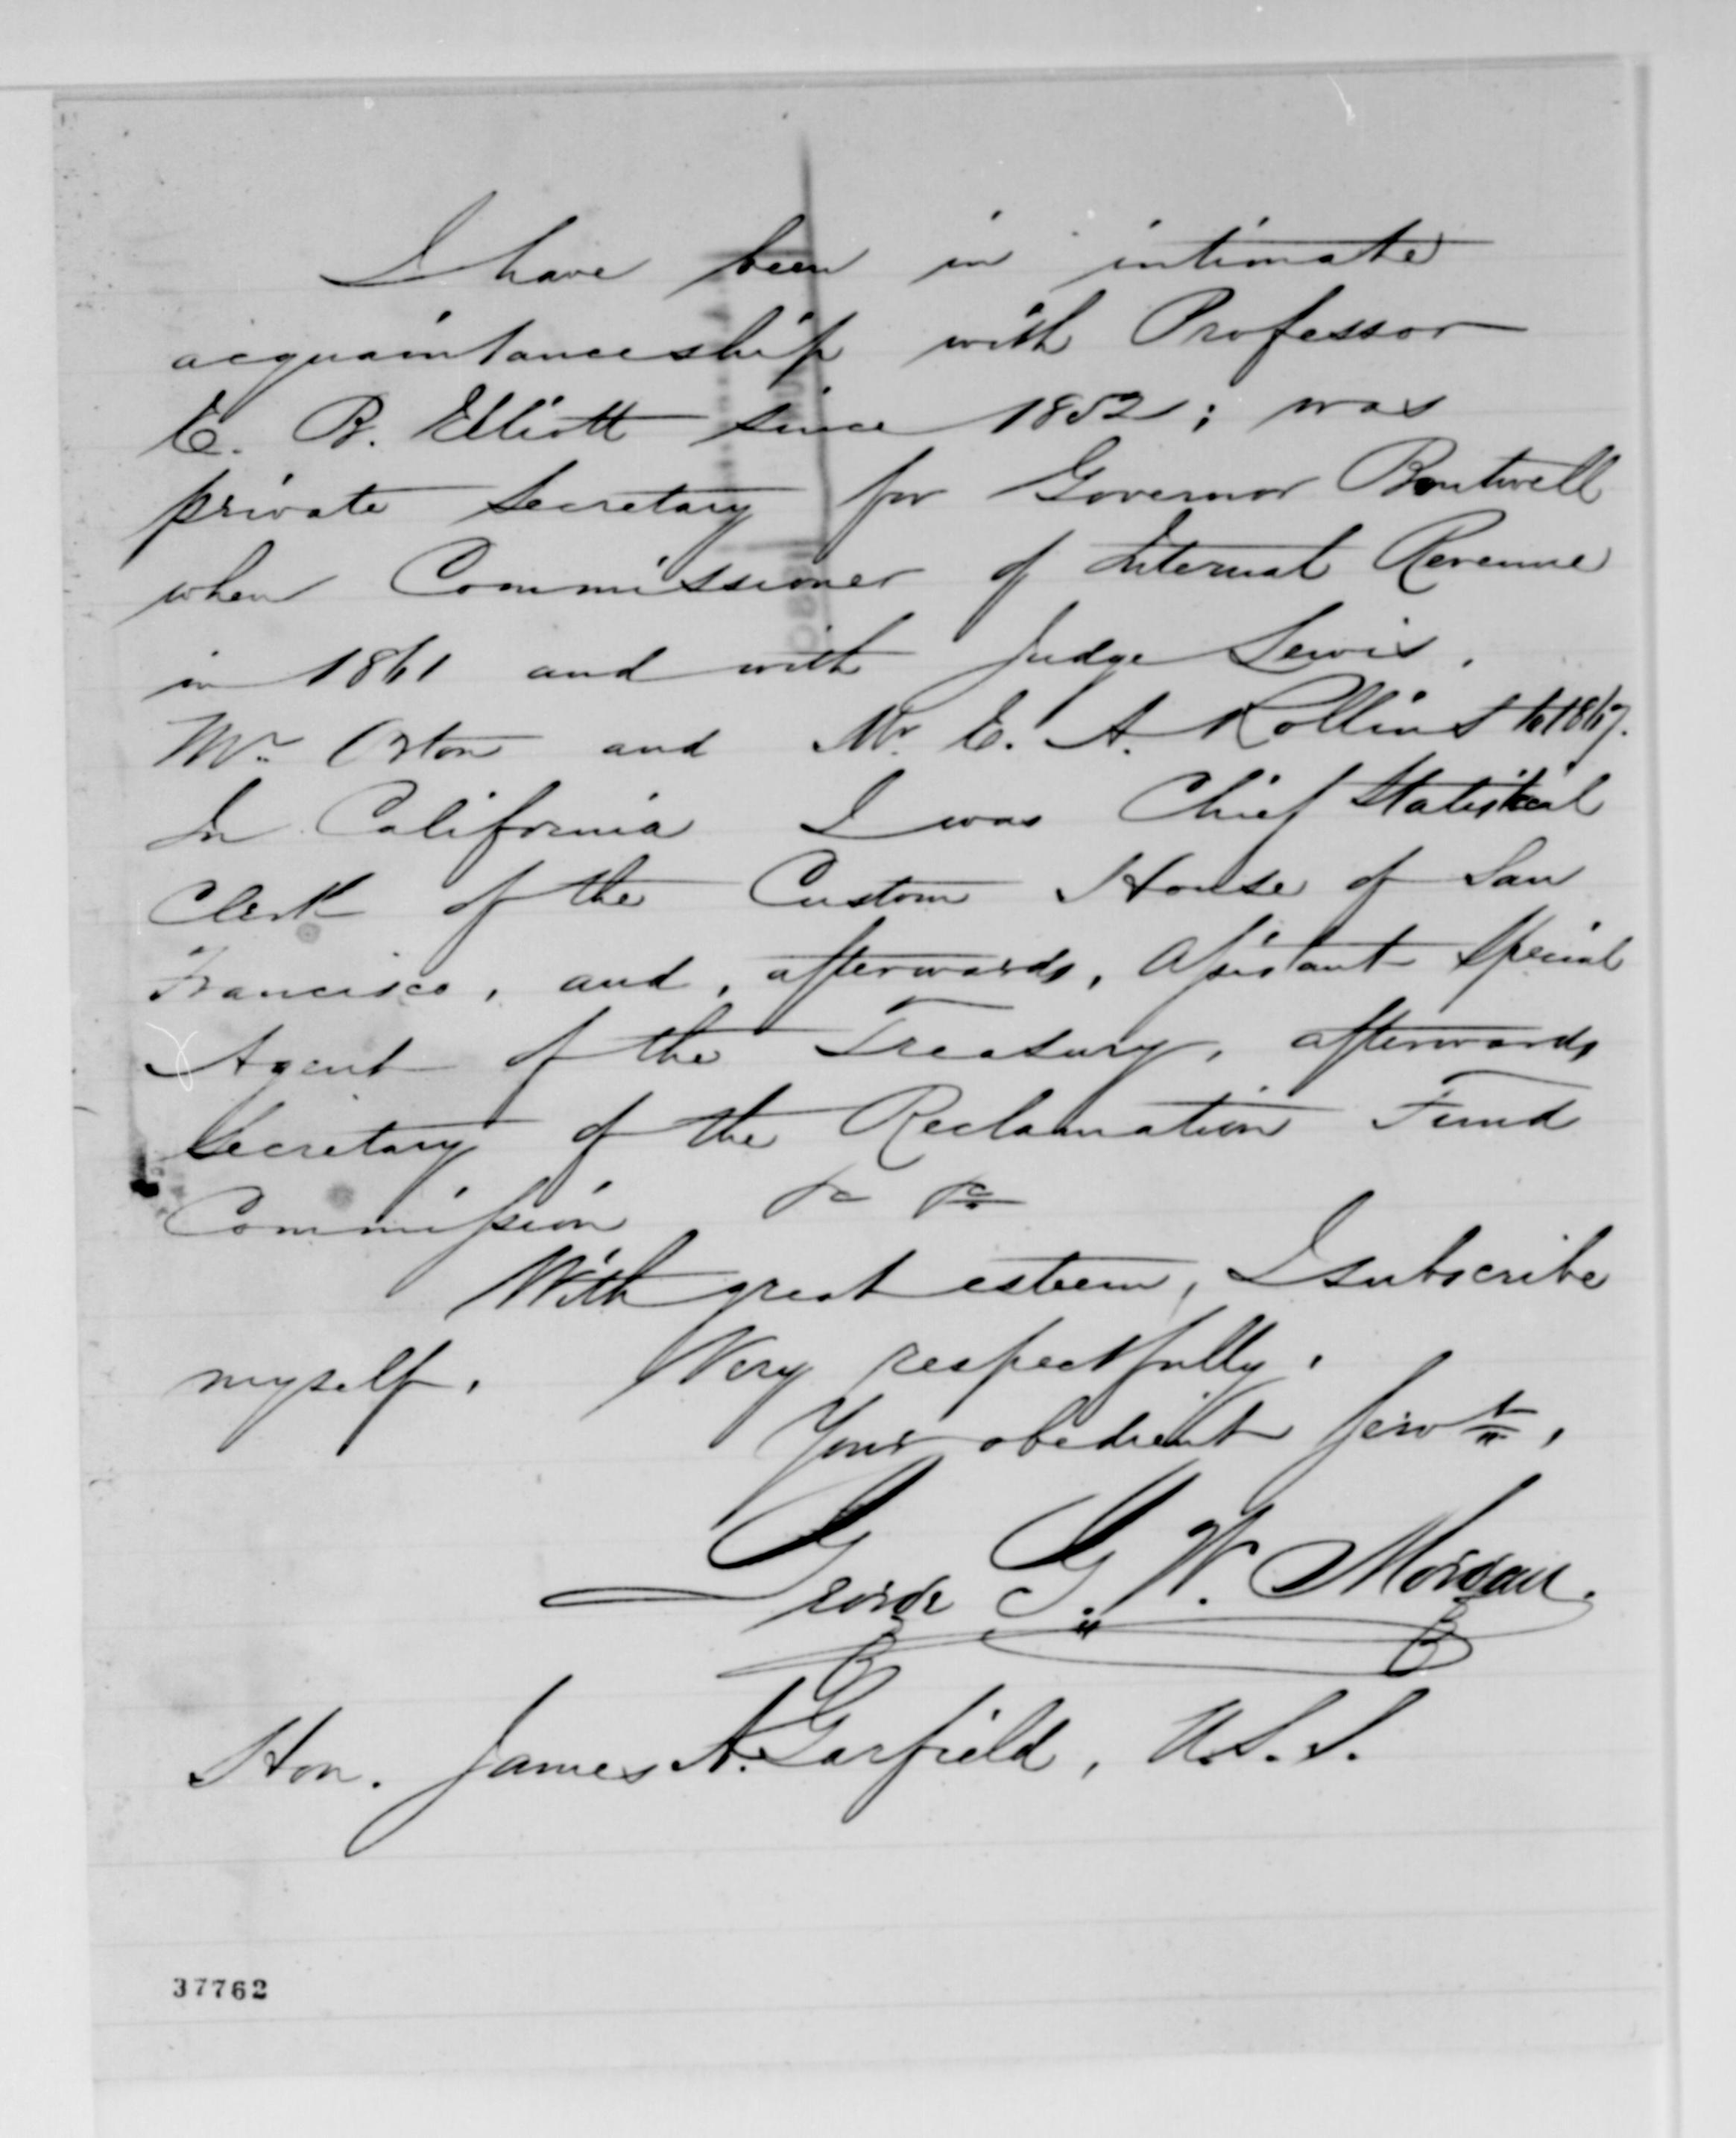 I have been in intimate
acquaintanceship with Professor
E. B. Elliott since 1852; was
private Secretary for Governor Boutwell
when Commissioner of Internal Revenue
in 1861 and with Judge Lewis,
Mr. Orton and Mr. E. A. Rollins to 1867.
In California I was Chief Statistical
Clerk of the Custom House of San
Francisco, and, afterwards, Assistant Special
Agent of the Treasury, afterwards
Secretary of the Reclamation Fund
Commission &c &c
With great esteem, I subscribe
myself, Very respectfully,
Your obedient Servt,
George G. W. Morgan.
Hon. James A. Garfield, U.S.S.
37762